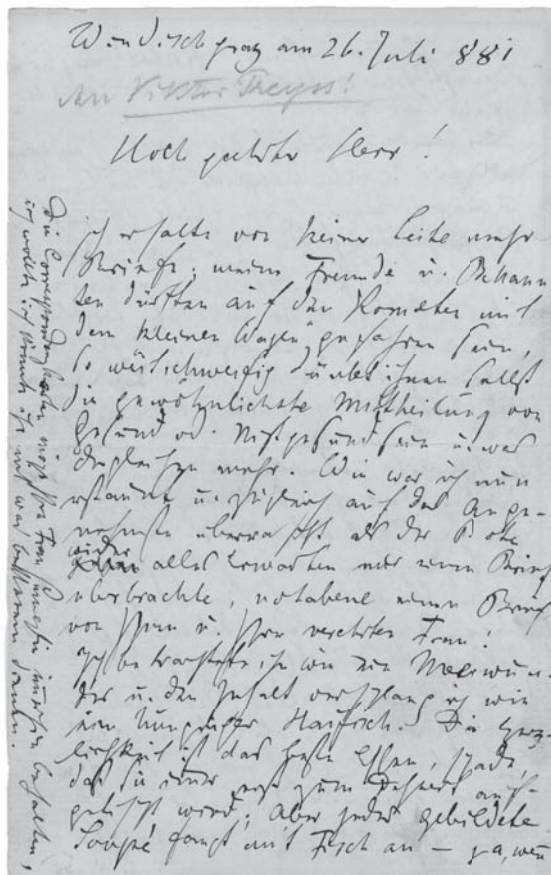 Windischgraz am 26. Juli 881
An Viktor Zeyss!
Hoch geehrter Herr!
ich erhalte von keiner Seite mehr
Briefe; meine Freunde u. Bekann
ten dürften auf den Kometen mit
dem kleinen Wagen gefahren sein,
so weitschweifig dünkt ihnen selbst
die gewöhnlichste Mittheilung von
Gesund od. Nichtgesundsein u. was
dergleichen mehr. Wie war ich nun
erstaunt u. zugleich auf das Ange-
nehmste überrascht als der Bote
wider alles Erwarten mir einen Brief
überbrachte, notabene einen Brief
von Ihnen u. Ihrer verehrten Frau!
Ich betrachtete ihn wie ein Meerwun-
der u. den Inhalt verschlang ich wie
ein hungriger Haifisch. Die Herz-
lichkeit ist das beste Essen, schade,
daß sie immer erst zum Dessert auf-
getischt wird; aber jedes gebildete
Soupé fangt mit Fisch an – ja, wenn
Die Correspondenzkarten mögen Ihre Frau Gemahlin immerhin behalten,
ich wollte ich könnte ihr mit was besserem dienen.